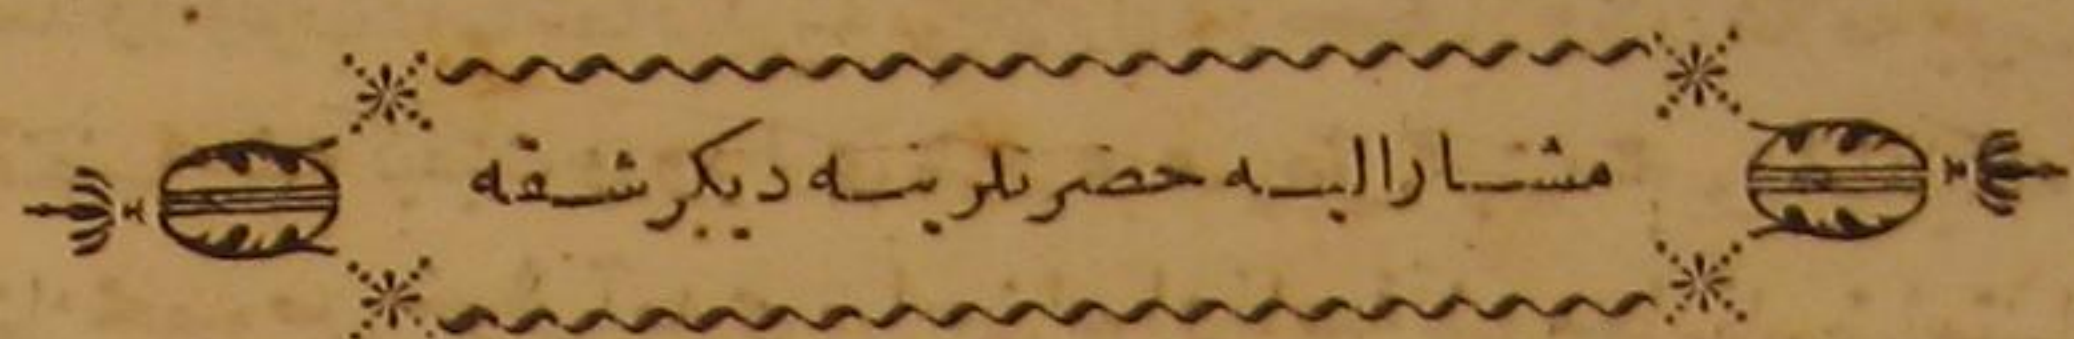 مشارالیه حضرتلرینه دیکر شقه